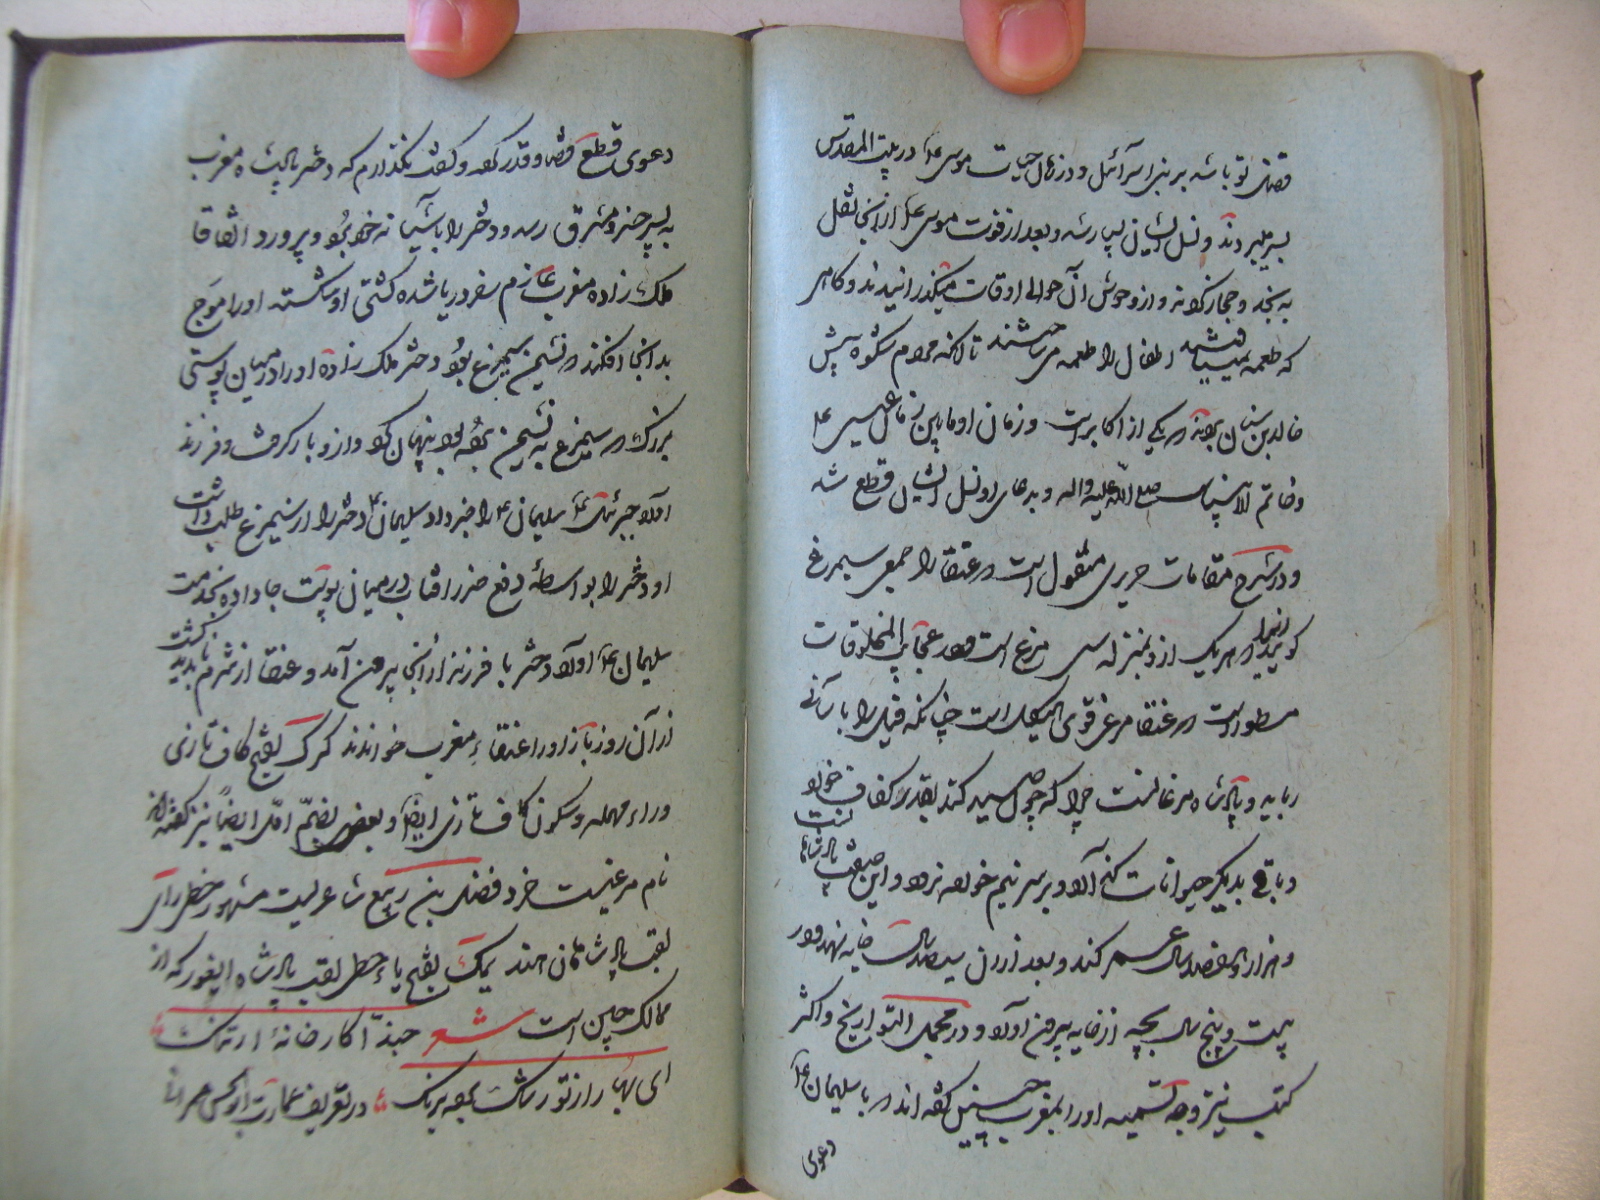 قصهٔ تو باشد بر بنی اسرائیل و در زمان حیات موسی ع در بیت المقدس
بسر میبردند و نسل ایشان بسیار شد و بعد از فوت موسی ع از آنجا نقل
به نجد و حجاز کردند و از وحوش آن حوالی اوقات میگذرانیدند و گاهی
که طعمه نمییافتند اطفال را طعمه می ساختند تا آنکه مردم شکوه پیش
خالد بن سنان بردند که یکی از اکابر است و زمان او مابین زمان عیسی ع
و خاتم الانبیاست صلی الله علیه واله و بدعای او نسل ایشان قطع شد
و در شرح مقامات حریری منقول است که عنقا را جمعی سیمرغ
گویند زیرا که هر یک از و بمنزله سی مرغ است و در عجایب المخلوقات
مسطور است که عنقا مرغی قوی هیکل است چنانکه فیل را بآسانی
رباید و پادشاه مرغانست چرا که چون صید کند بقدر کفاف خود
و باقی بدیگر حیوانات گذارد و بر سر نیم خورده نرود و این صفت پادشاهانست
و هزار و هفتصد سال عمر کند و بعد از سیصد سال خایه نهد و در
بیست و پنج سال بچه از خایه بیرون آورد و در مجمل التواریخ و اکثر
کتب نیز وجه تسمیه او را بمغرب چنین گفته اند که با سلیمان ع
دعوی
دعوی قطع قضا و قدر کرد و گفت نگذارم که دختر پادشاه مغرب
به پسر جزو مشرق رسد و دختر را بآشیانه خود برد و پرورد اتفاقا
ملک زاده مغرب عازم سفر دریا شده کشتی او شکسته او را موج
بدانجا افکند که نشیمن سیمرغ بود دختر ملک زاده او را در میان پوستی
بزرگ که سیمرغ به نشیمن برده بود پنهان کرد و از و بار گرفت و فرزند
آورد جبرئیل ع سلیمان ع را خبر داد سلیمان ع دختر را از سیمرغ طلب داشت
او دختر را بواسطهٔ دفع ضرر آفتاب در میان پوست جا داده بخدمت
سلیمان ع آورد دختر با فرزند از آنجا بیرون آمد و عنقا از شرم ناپدید گشت
از آن روز باز او را عنقاء مغرب خواندند کرک بفتح کاف تازی
و راء مهمله و سکون کاف تازی ایضا و بعضی بضم اول ایضا نیز گفته اند
نام مرغیست خرد فضل بن ربیع شاعریست مشهور خطل رای
لقب پادشاهان هند یمک بفتح یاء حطی لقب پادشاه ایغور که از
ممالک چین است شعر حبذا کارخانهٔ ارتنگ
ای بهار از تو رشک برده برنگ در تعریف عمارت ابوالحسن